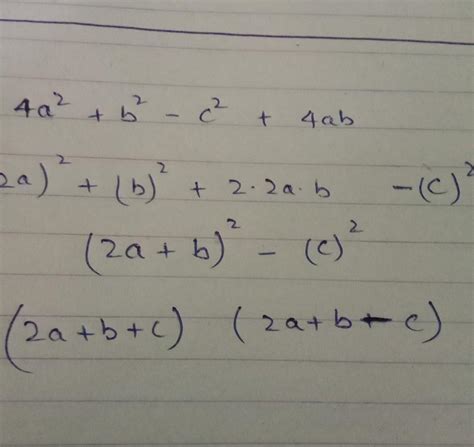 4a² + b² - c² + 4ab
2a)² + (b)² + 2·2a·b -(c)²
(2a + b)² - (c)²
(2a+b+c) (2a+b-c)